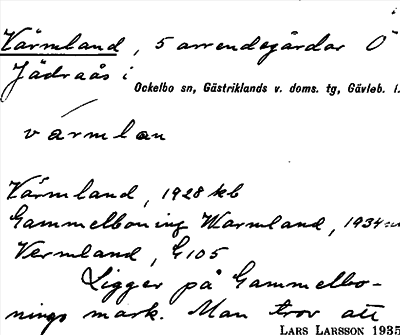 Värmland, 5 arrendegårdar Ö
Jädraås i
Ockelbo sn, Gästriklands v. doms. tg, Gävleb. l.
värmlan
Värmland, 1928 kb
Gammelboning Warmland, 1934
Vermland, G105
Ligger på Gammelbo-
nings mark. Man tror att
LARS LARSSON 1935